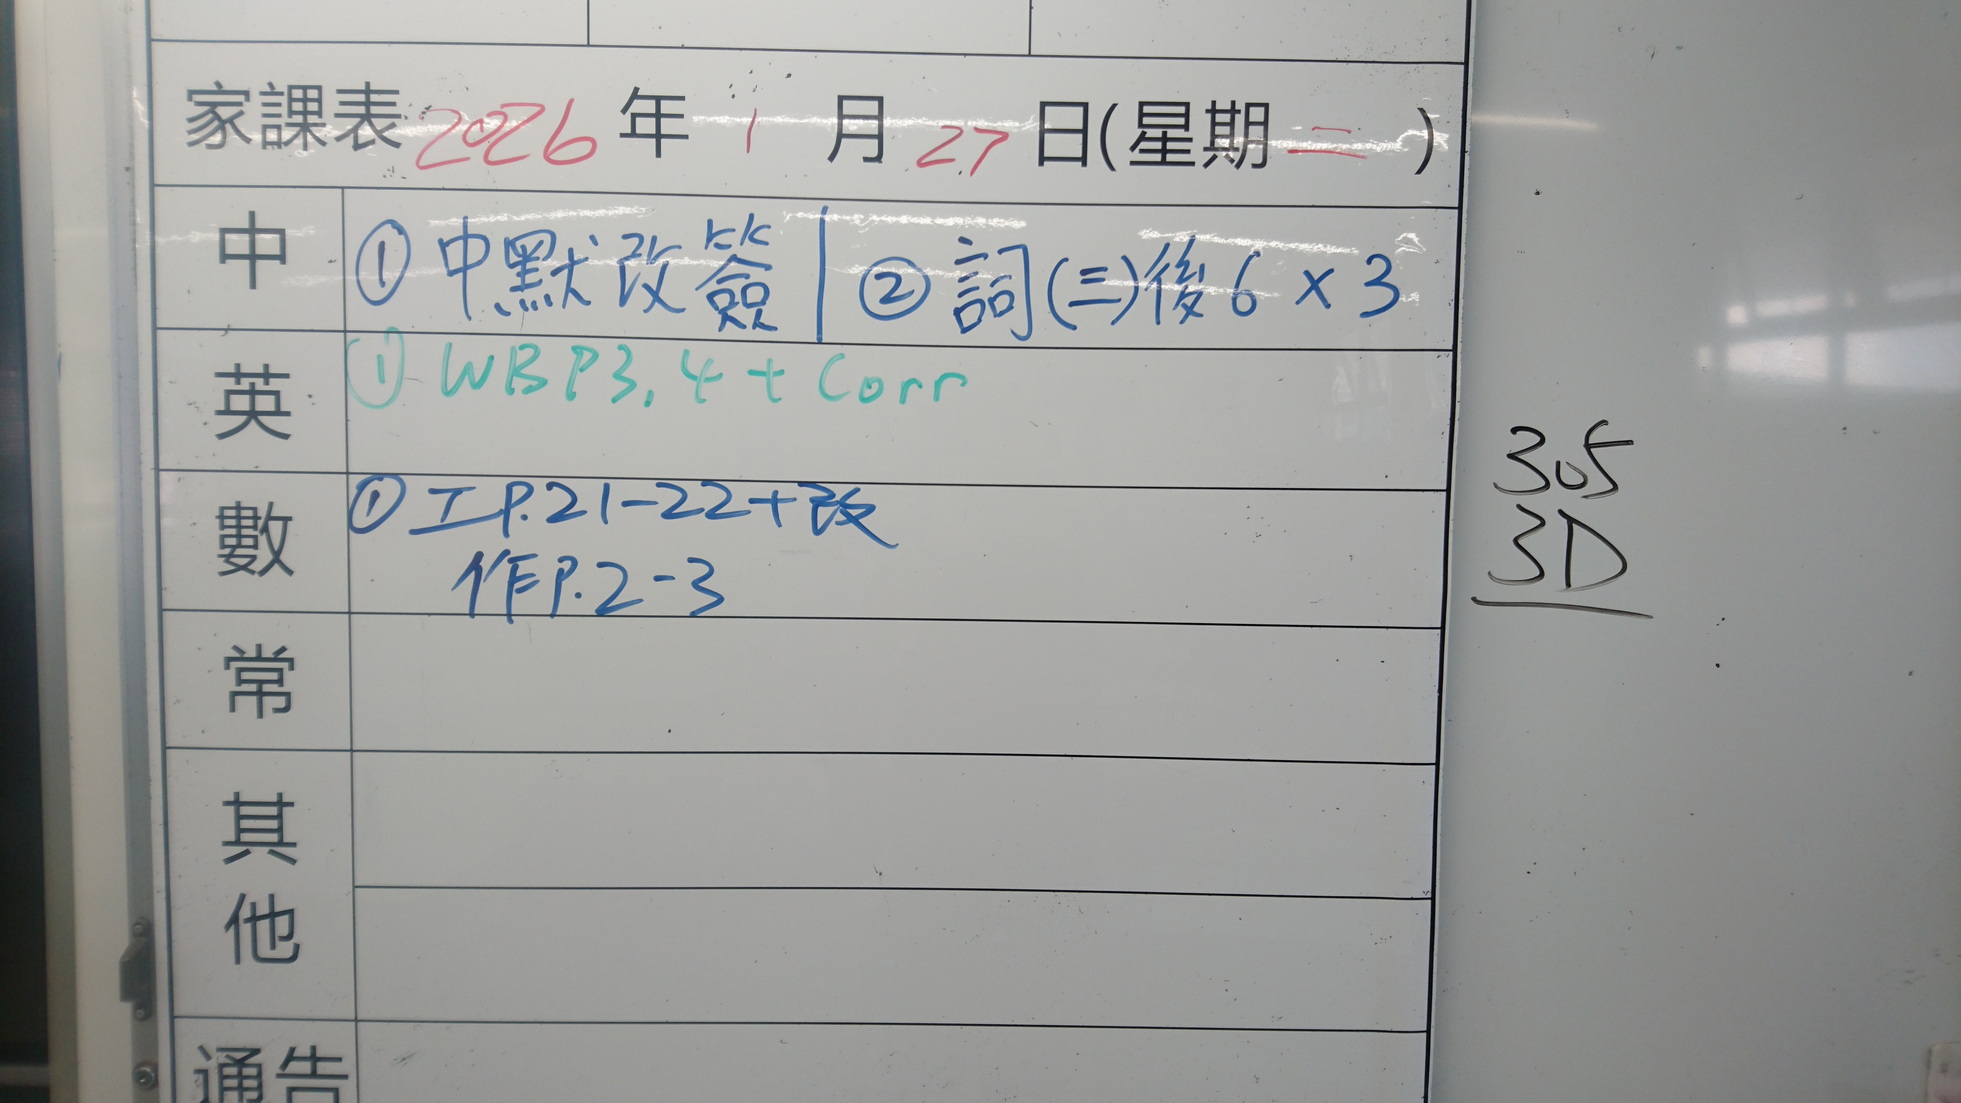 家課表 2026 年 1 月 27 日(星期二)
中 ① 中默改簽 | ② 詞(三)後6 × 3
英 ① WB P3, 4 + Corr
數 ① 工P.21-22+改
作P.2-3
常
其他
通告
305
3D